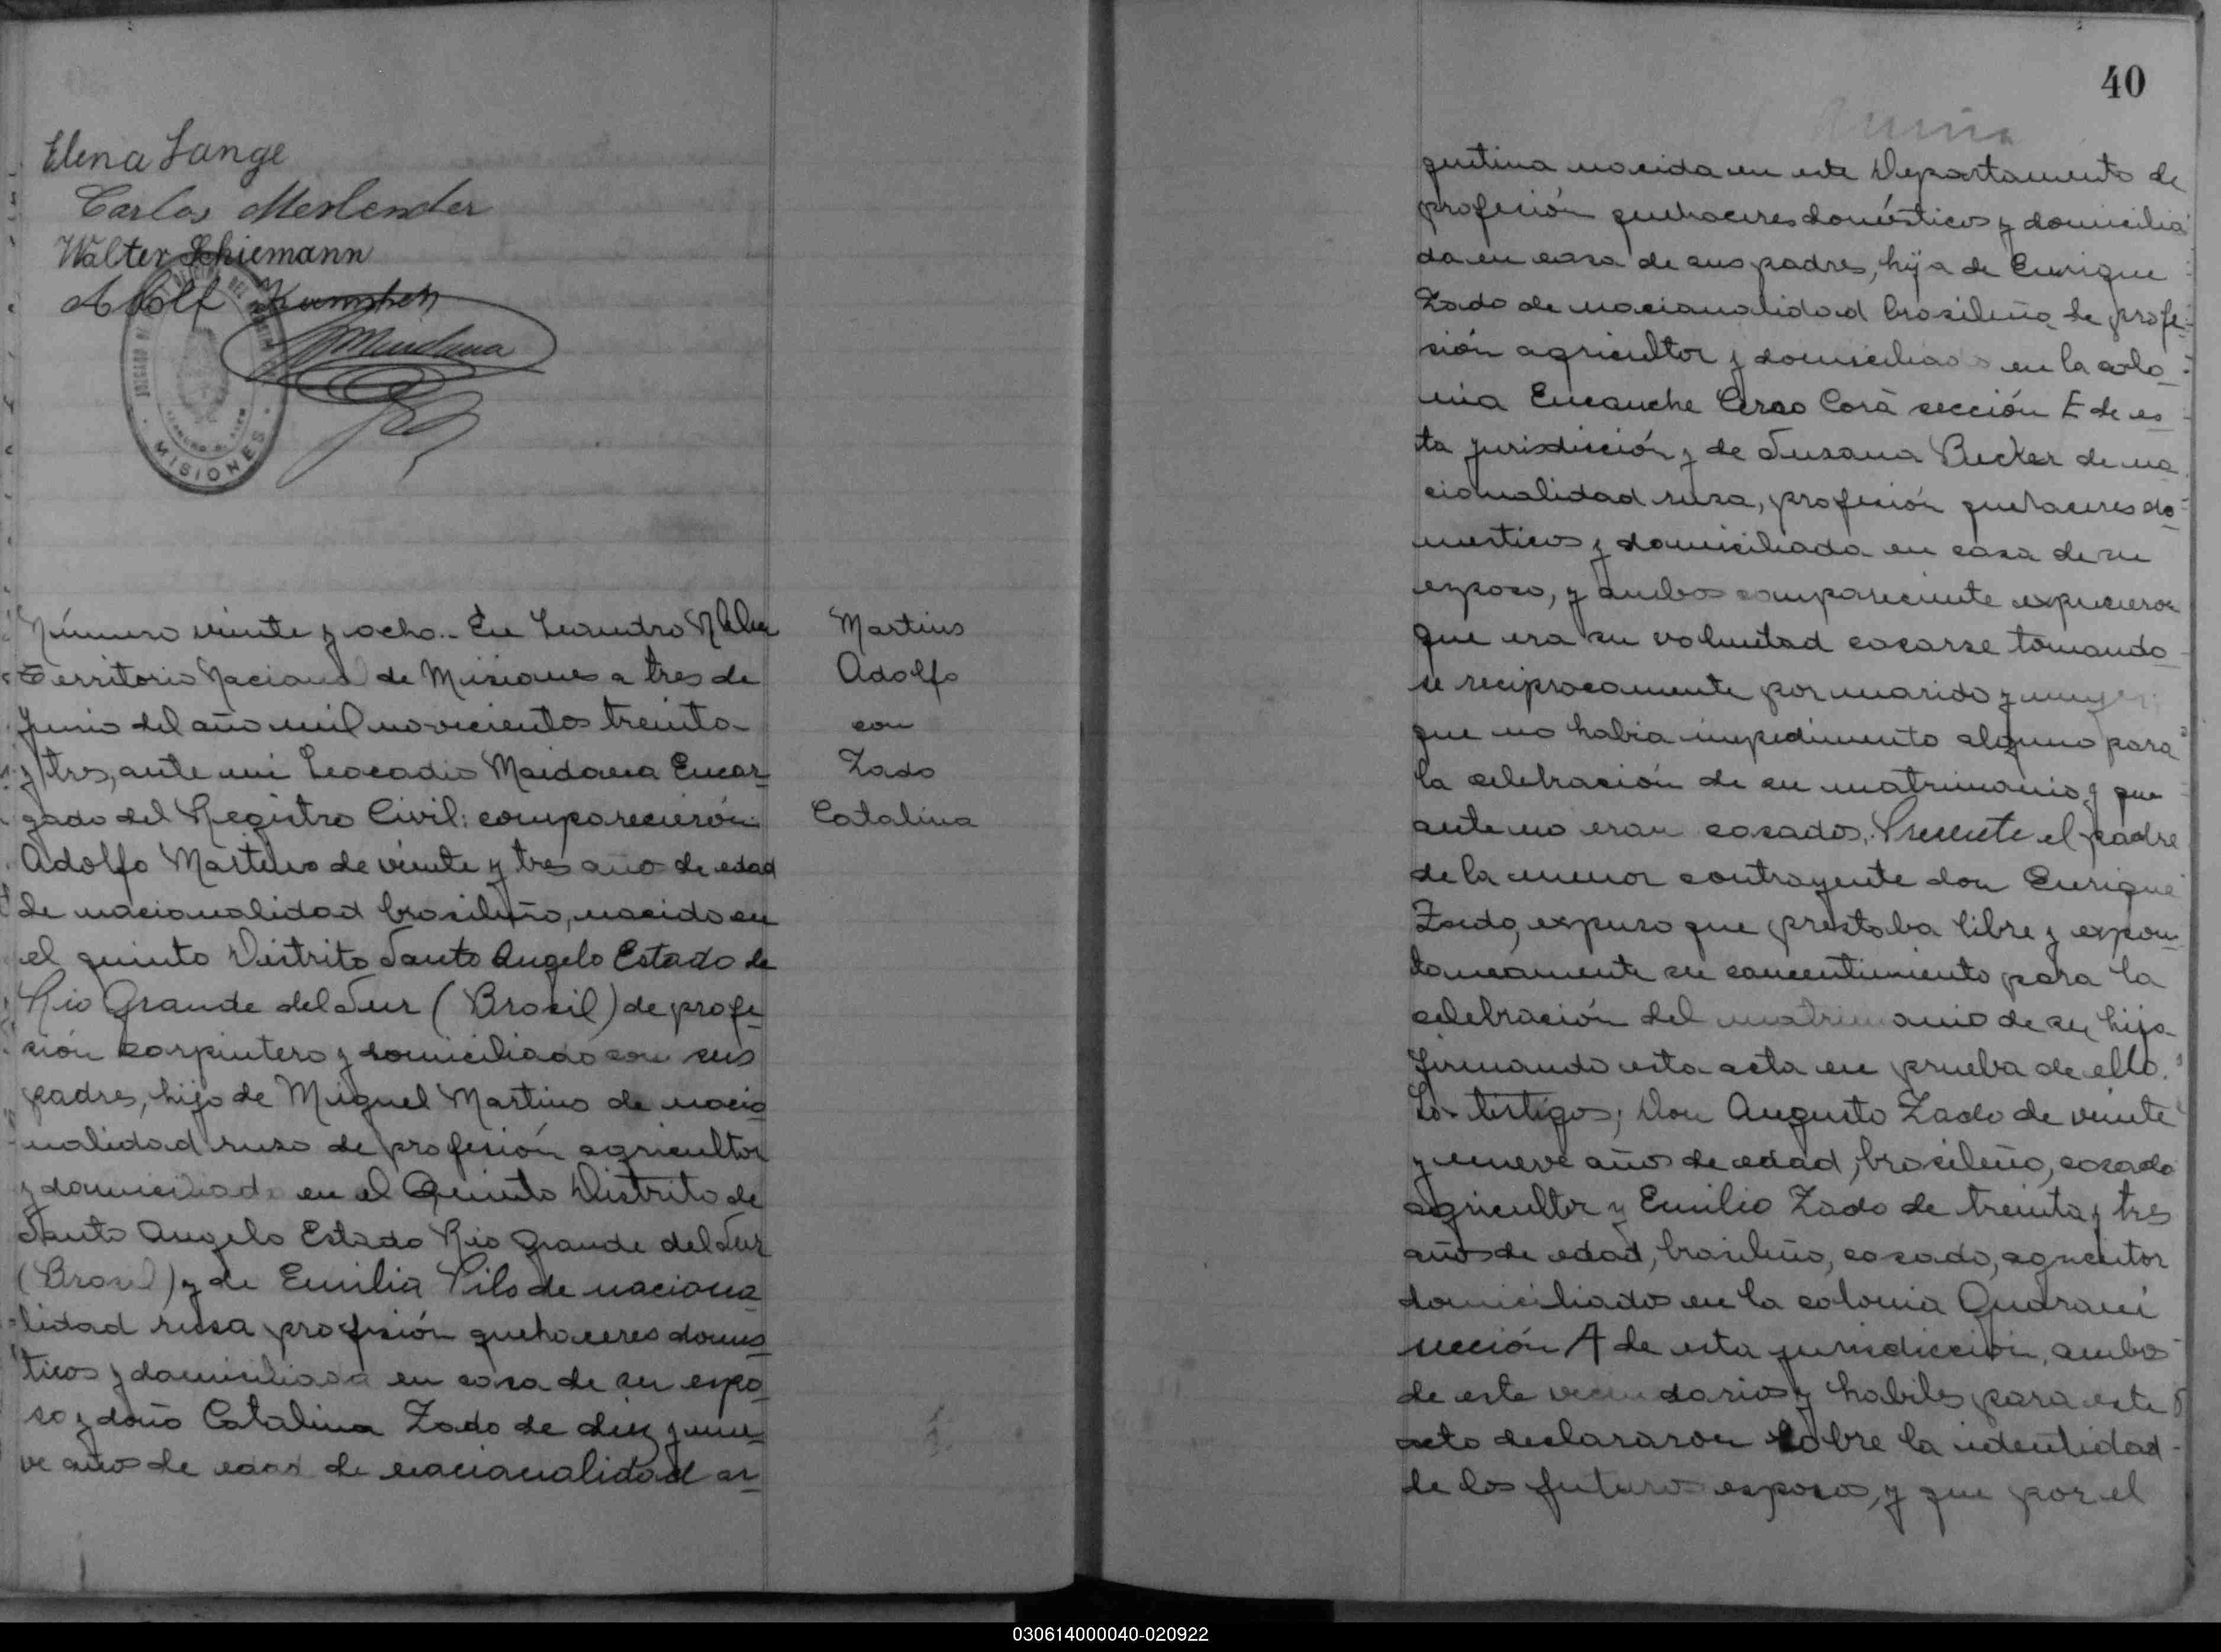 Elena Lange
Carlos Meslender
Walter Schiemann
Adolf
JUZGADO DE
MISIONES
Número veinte y ocho.. En Leandro N Alem
Territorio Nacional de Misiones a tres de
Junio del año mil novecientos treinta
y tres, ante mi Leocadio Maidana Encar
gado del Registro Civil: comparecieron:
Adolfo Martins de veinte y tres año de edad
de nacionalidad brasileño, nacido en
el quinto Distrito Santo Angelo Estado de
Rio Grande del Sur (Brasil) de profe
sión carpintero y domiciliado con sus
padres, hijo de Miguel Martins de nacio
nalidad ruso de profesión agricultor
y domiciliado en el Quinto Distrito de
Santo Angelo Estado Rio Grande del Sur
(Brasil) y de Emilia Pils de naciona
lidad rusa profesión quehaceres domes
ticos y domiciliada en casa de su espo
so y doña Catalina Zado de diez y nue
ve años de edad de nacionalidad ar
Martins
Adolfo
con
Zado
Catalina
40
gentina nacida en este Departamento de
profesión quehaceres domésticos y domicilia
da en casa de sus padres, hija de Enrique
Zado de nacionalidad brasileña de profe
sión agricultor y domiciliado en la colo
nia Ensanche Cerro Corá sección E de es
ta jurisdicción y de Susana Becker de na
cionalidad rusa, profesión quehaceres do
mesticos y domiciliada en casa de su
esposo, y ambos compareciente expusieron
que era su voluntad casarse tomando
se reciprocamente por marido y mujer
que no habia impedimento alguno para
la celebración de su matrimonio y que
ante no eran casados. Presente el padre
de la menor contrayente don Enrique
Zado, expuso que prestaba libre y espon
taneamente su consentimiento para la
celebración del matrimonio de su hija
firmando esta acta en prueba de ello.
Los testigos; Don Augusto Zado de veinte
y nueve años de edad, brasileño, casado
agricultor y Emilio Zado de treinta y tres
años de edad, brasileño, casado, agricutor
domiciliados en la colonia Guaraní
sección A de esta jurisdicción, ambos
de este vecindario y habiles para este
acto declararon sobre la identidad
de los futuros esposos, y que por el
030614000040-020922